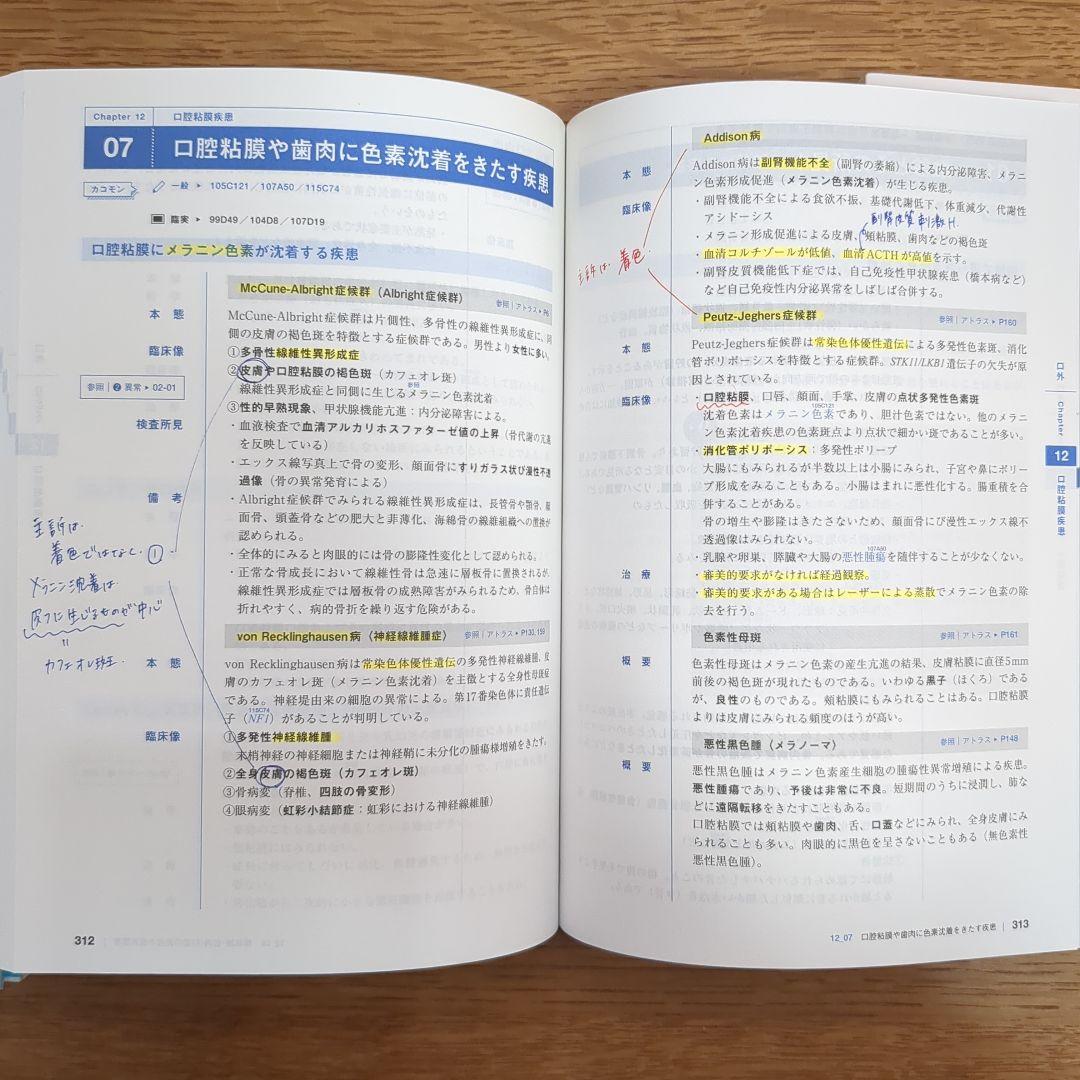 Chapter 12 口腔粘膜疾患
07 口腔粘膜や歯肉に色素沈着をきたす疾患
カコモン 一般 ▸ 105C121／107A50／115C74
臨実 ▸ 99D49／104D8／107D19
口腔粘膜にメラニン色素が沈着する疾患
McCune-Albright症候群（Albright症候群） 参照｜アトラス▸P6
本態
McCune-Albright症候群は片側性、多骨性の線維性異形成症に、同
側の皮膚の褐色斑を特徴とする症候群である。男性より女性に多い。
臨床像
①多骨性線維性異形成症
②皮膚や口腔粘膜の褐色斑（カフェオレ斑）
参照｜❷ 異常 ▸ 02-01
線維性異形成症と同側に生じるメラニン色素沈着
参照
③性的早熟現象、甲状腺機能亢進：内分泌障害による。
検査所見
・血液検査で血清アルカリホスファターゼ値の上昇（骨代謝の亢進
を反映している）
・エックス線写真上で骨の変形、顔面骨にすりガラス状びまん性不透
過像（骨の異常発育による）
備考
・Albright症候群でみられる線維性異形成症は、長管骨や顎骨、顔
面骨、頭蓋骨などの肥大と非薄化、海綿骨の線維組織への置換が
認められる。
・全体的にみると肉眼的には骨の膨隆性変化として認められる。
・正常な骨成長において線維性骨は急速に層板骨に置換されるが、
線維性異形成症では層板骨の成熟障害がみられるため、骨自体は
折れやすく、病的骨折を繰り返す危険がある。
主訴は、
着色ではなく、①
メラニン沈着は
皮フに生じるものが中心
＝
カフェオレ斑.
von Recklinghausen病（神経線維腫症） 参照｜アトラス▸P130, 159
本態
von Recklinghausen病は常染色体優性遺伝の多発性神経線維腫、皮
膚のカフェオレ斑（メラニン色素沈着）を主徴とする全身性母斑症
である。神経堤由来の細胞の異常による。第17番染色体に責任遺伝
115C74
子（NF1）があることが判明している。
臨床像
①多発性神経線維腫
末梢神経の神経細胞または神経鞘に未分化の腫瘍様増殖をきたす。
②全身皮膚の褐色斑（カフェオレ斑）
③骨病変（脊椎、四肢の骨変形）
④眼病変（虹彩小結節症：虹彩における神経線維腫）
312
Addison病
本態
Addison病は副腎機能不全（副腎の萎縮）による内分泌障害、メラニ
ン色素形成促進（メラニン色素沈着）が生じる疾患。
臨床像
・副腎機能不全による食欲不振、基礎代謝低下、体重減少、代謝性
アシドーシス
副腎皮質刺激H.
・メラニン形成促進による皮膚、頬粘膜、歯肉などの褐色斑
主訴は、着色
・血清コルチゾールが低値、血清ACTHが高値を示す。
・副腎皮質機能低下症では、自己免疫性甲状腺疾患（橋本病など）
など自己免疫性内分泌異常をしばしば合併する。
Peutz-Jeghers症候群 参照｜アトラス▸P160
本態
Peutz-Jeghers症候群は常染色体優性遺伝による多発性色素斑、消化
管ポリポーシスを特徴とする症候群。STK11/LKB1遺伝子の欠失が原
因とされている。
臨床像
・口腔粘膜、口唇、顔面、手掌、皮膚の点状多発性色素斑
105C121
沈着色素はメラニン色素であり、胆汁色素ではない。他のメラニ
ン色素沈着疾患の色素斑点より点状で細かい斑であることが多い。
・消化管ポリポーシス：多発性ポリープ
大腸にもみられるが半数以上は小腸にみられ、子宮や鼻にポリー
プ形成をみることもある。小腸はまれに悪性化する。腸重積を合
併することがある。
骨の増生や膨隆はきたさないため、顔面骨にびまん性エックス線不
透過像はみられない。
107A50
・乳腺や卵巣、膵臓や大腸の悪性腫瘍を随伴することが少なくない。
治療
・審美的要求がなければ経過観察。
・審美的要求がある場合はレーザーによる蒸散でメラニン色素の除
去を行う。
色素性母斑 参照｜アトラス▸P161
概要
色素性母斑はメラニン色素の産生亢進の結果、皮膚粘膜に直径5mm
前後の褐色斑が現れたものである。いわゆる黒子（ほくろ）である
が、良性のものである。頬粘膜にもみられることはある。口腔粘膜
よりは皮膚にみられる頻度のほうが高い。
悪性黒色腫（メラノーマ） 参照｜アトラス▸P148
概要
悪性黒色腫はメラニン色素産生細胞の腫瘍性異常増殖による疾患。
悪性腫瘍であり、予後は非常に不良。短期間のうちに浸潤し、肺な
どに遠隔転移をきたすこともある。
口腔粘膜では頬粘膜や歯肉、舌、口蓋などにみられ、全身皮膚にみ
られることも多い。肉眼的に黒色を呈さないこともある（無色素性
悪性黒色腫）。
口外
Chapter
12
口腔粘膜疾患
12_07 口腔粘膜や歯肉に色素沈着をきたす疾患｜313